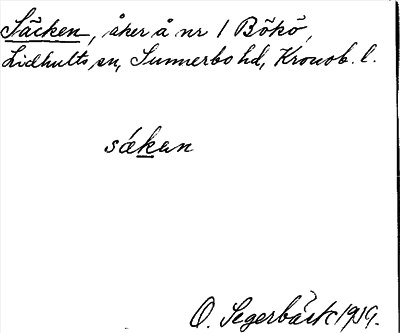 Säcken, åker å nr 1 Bökö,
Lidhults sn, Sunnerbo hd, Kronob. l.
säkan
O. Segerbäck 1919.